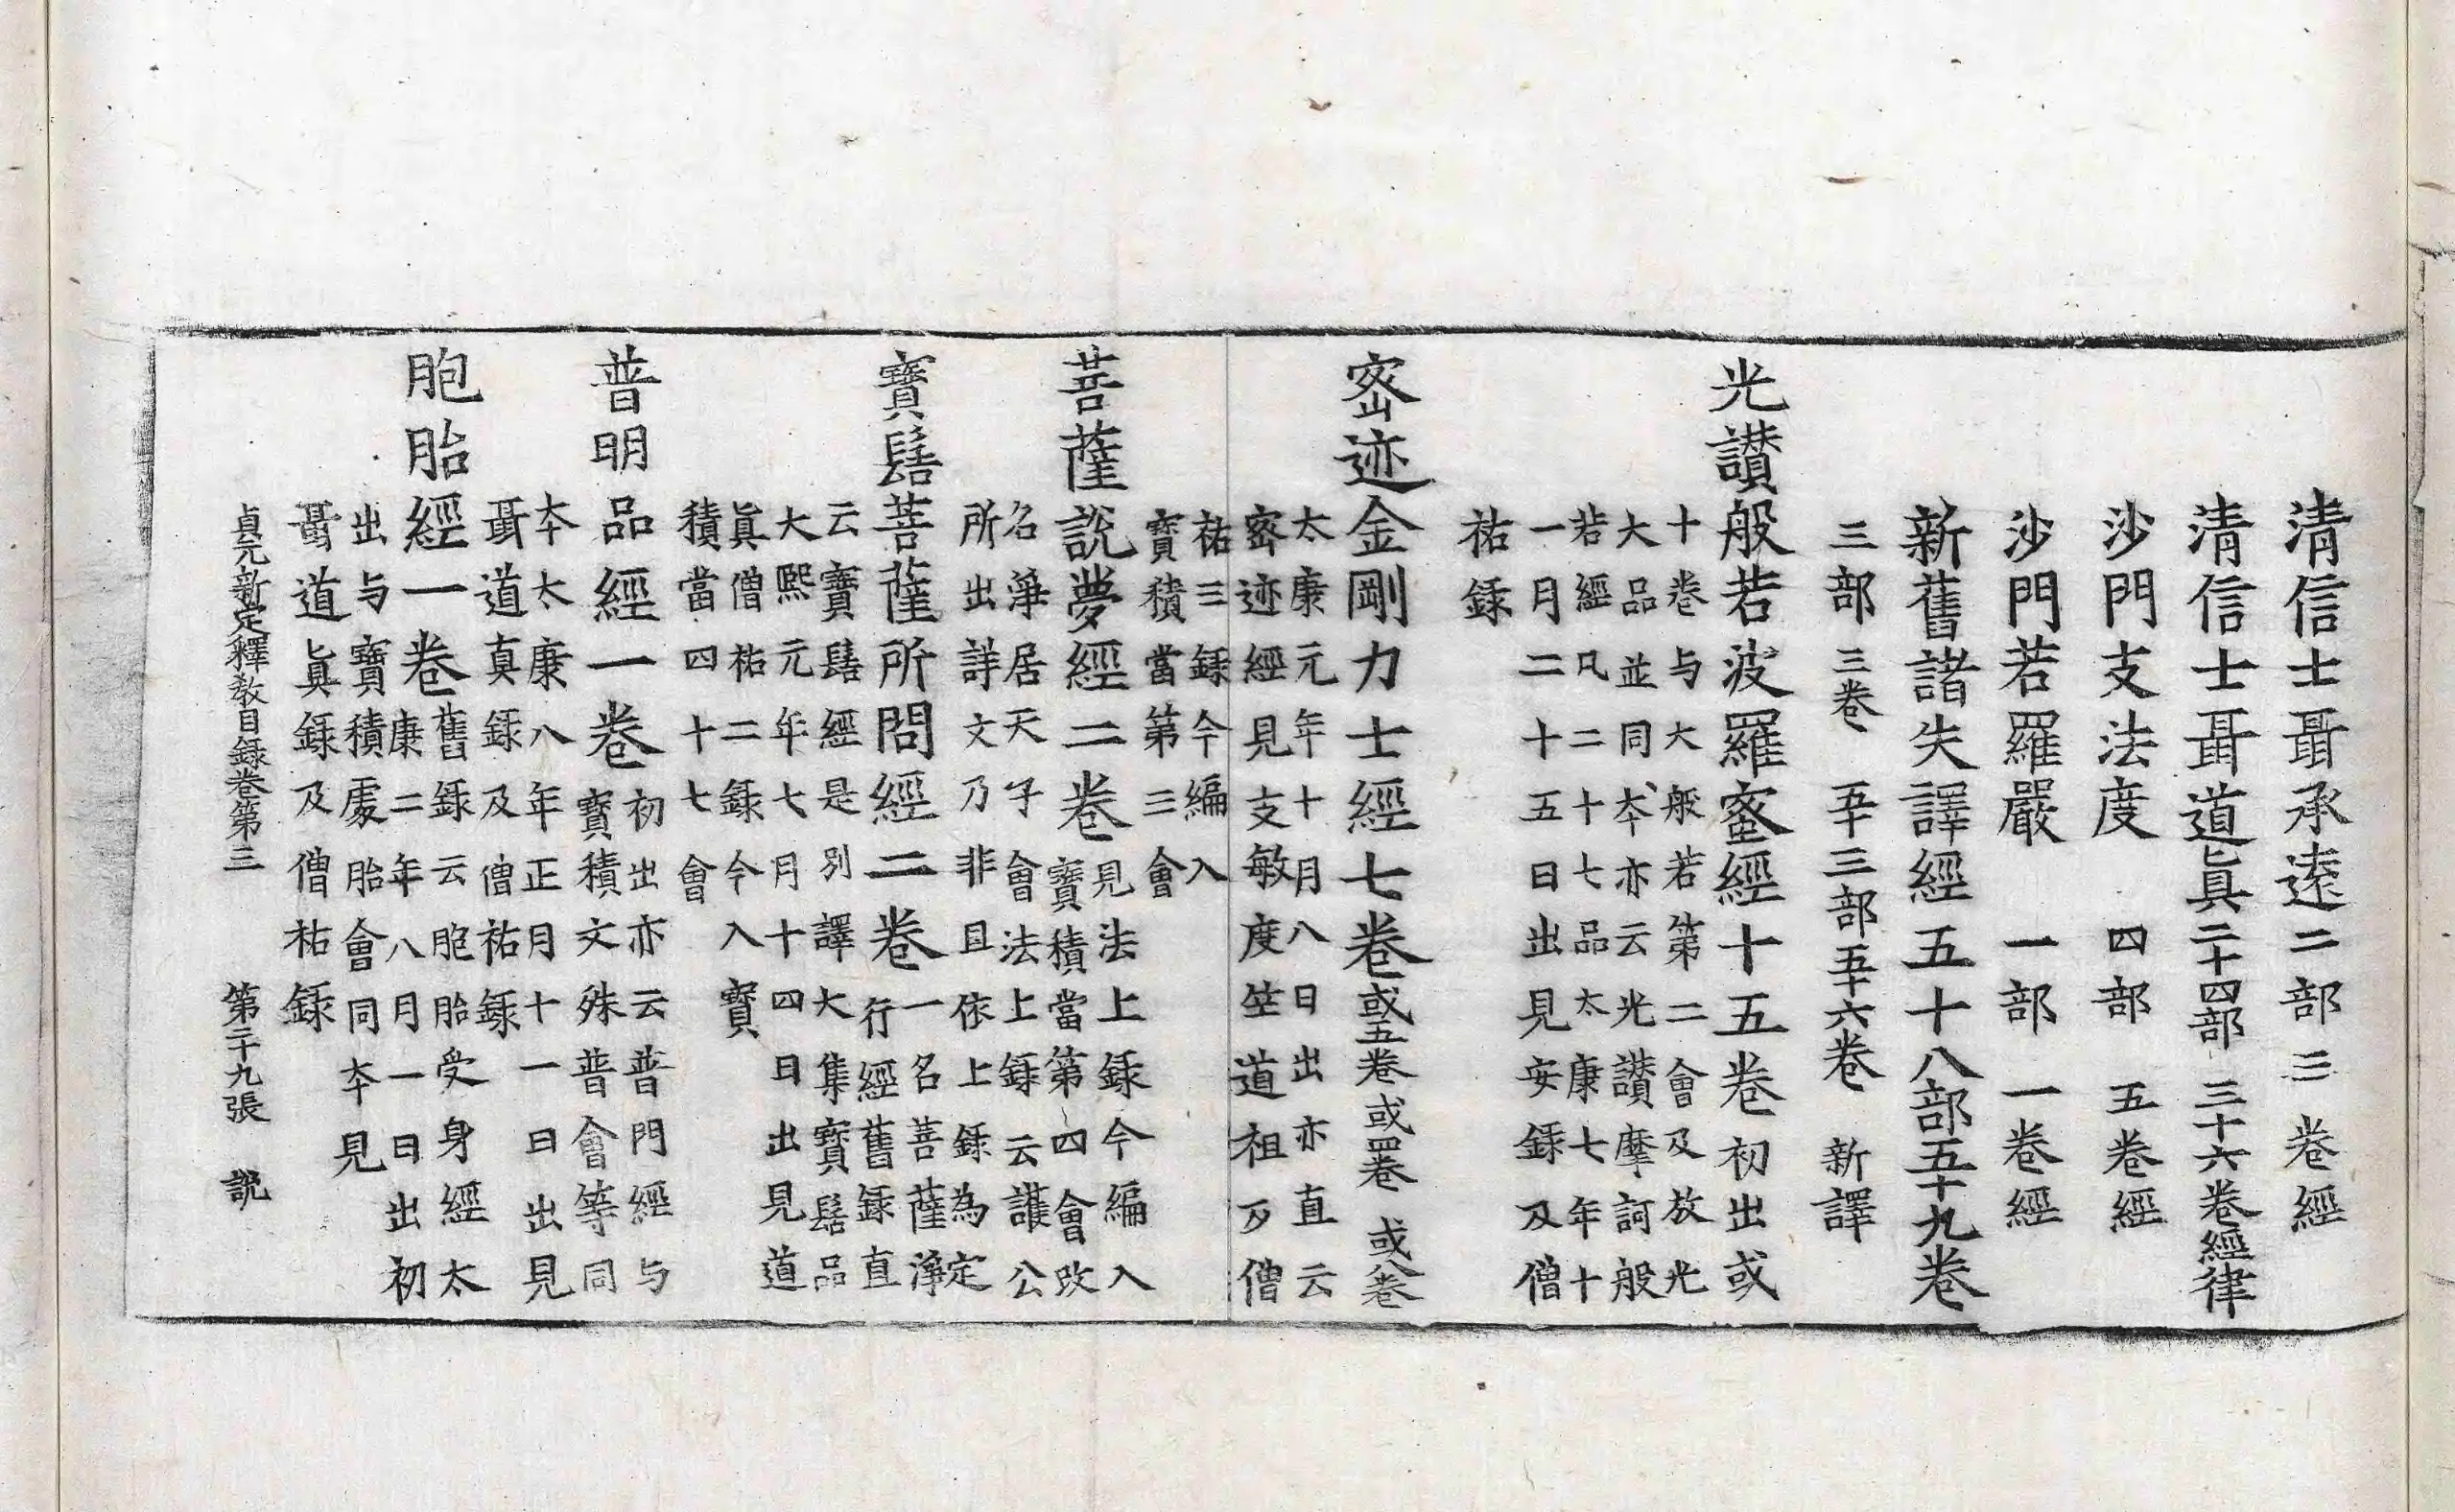 清信士聶承遠二部三卷經
清信士聶道真二十四部三十六卷經律
沙門支法度四部五卷經
沙門若羅嚴一部一卷經
新舊諸失譯經五十八部五十九卷
三部三卷　五十三部五十六卷　新譯
光讃般若波羅蜜經十五卷初出或
十卷与大般若第二會及放光
大品並同本亦云光讃摩訶般
若經凡二十七品太康七年十
一月二十五日出見安録及僧
祐録
密迹金剛力士經七卷或五卷或四卷或八卷
太康元年十月八日出亦直云
密迹經見支敏度竺道祖及僧
祐三録今編入
寶積當第三會
菩薩說夢經二卷
見法上録今編入
寶積當第四會改
名淨居天子會法上録云護公
所出詳文乃非且依上録為定
寶髻菩薩所問經二卷
一名菩薩淨
行經舊録直
云寶髻經是別譯大集寶髻品
大熙元年七月十四日出見道
真僧祐二録今入寶
積當四十七會
普明品經一卷
初出亦云普門經与
寶積文殊普會等同
本太康八年正月十一日出見
聶道真録及僧祐録
胞胎經一卷
舊録云胞胎受身經太
康二年八月一日出初
出与寶積處胎會同本見
聶道真録及僧祐録
貞元新定釋教目録卷第三　第二十九張　說